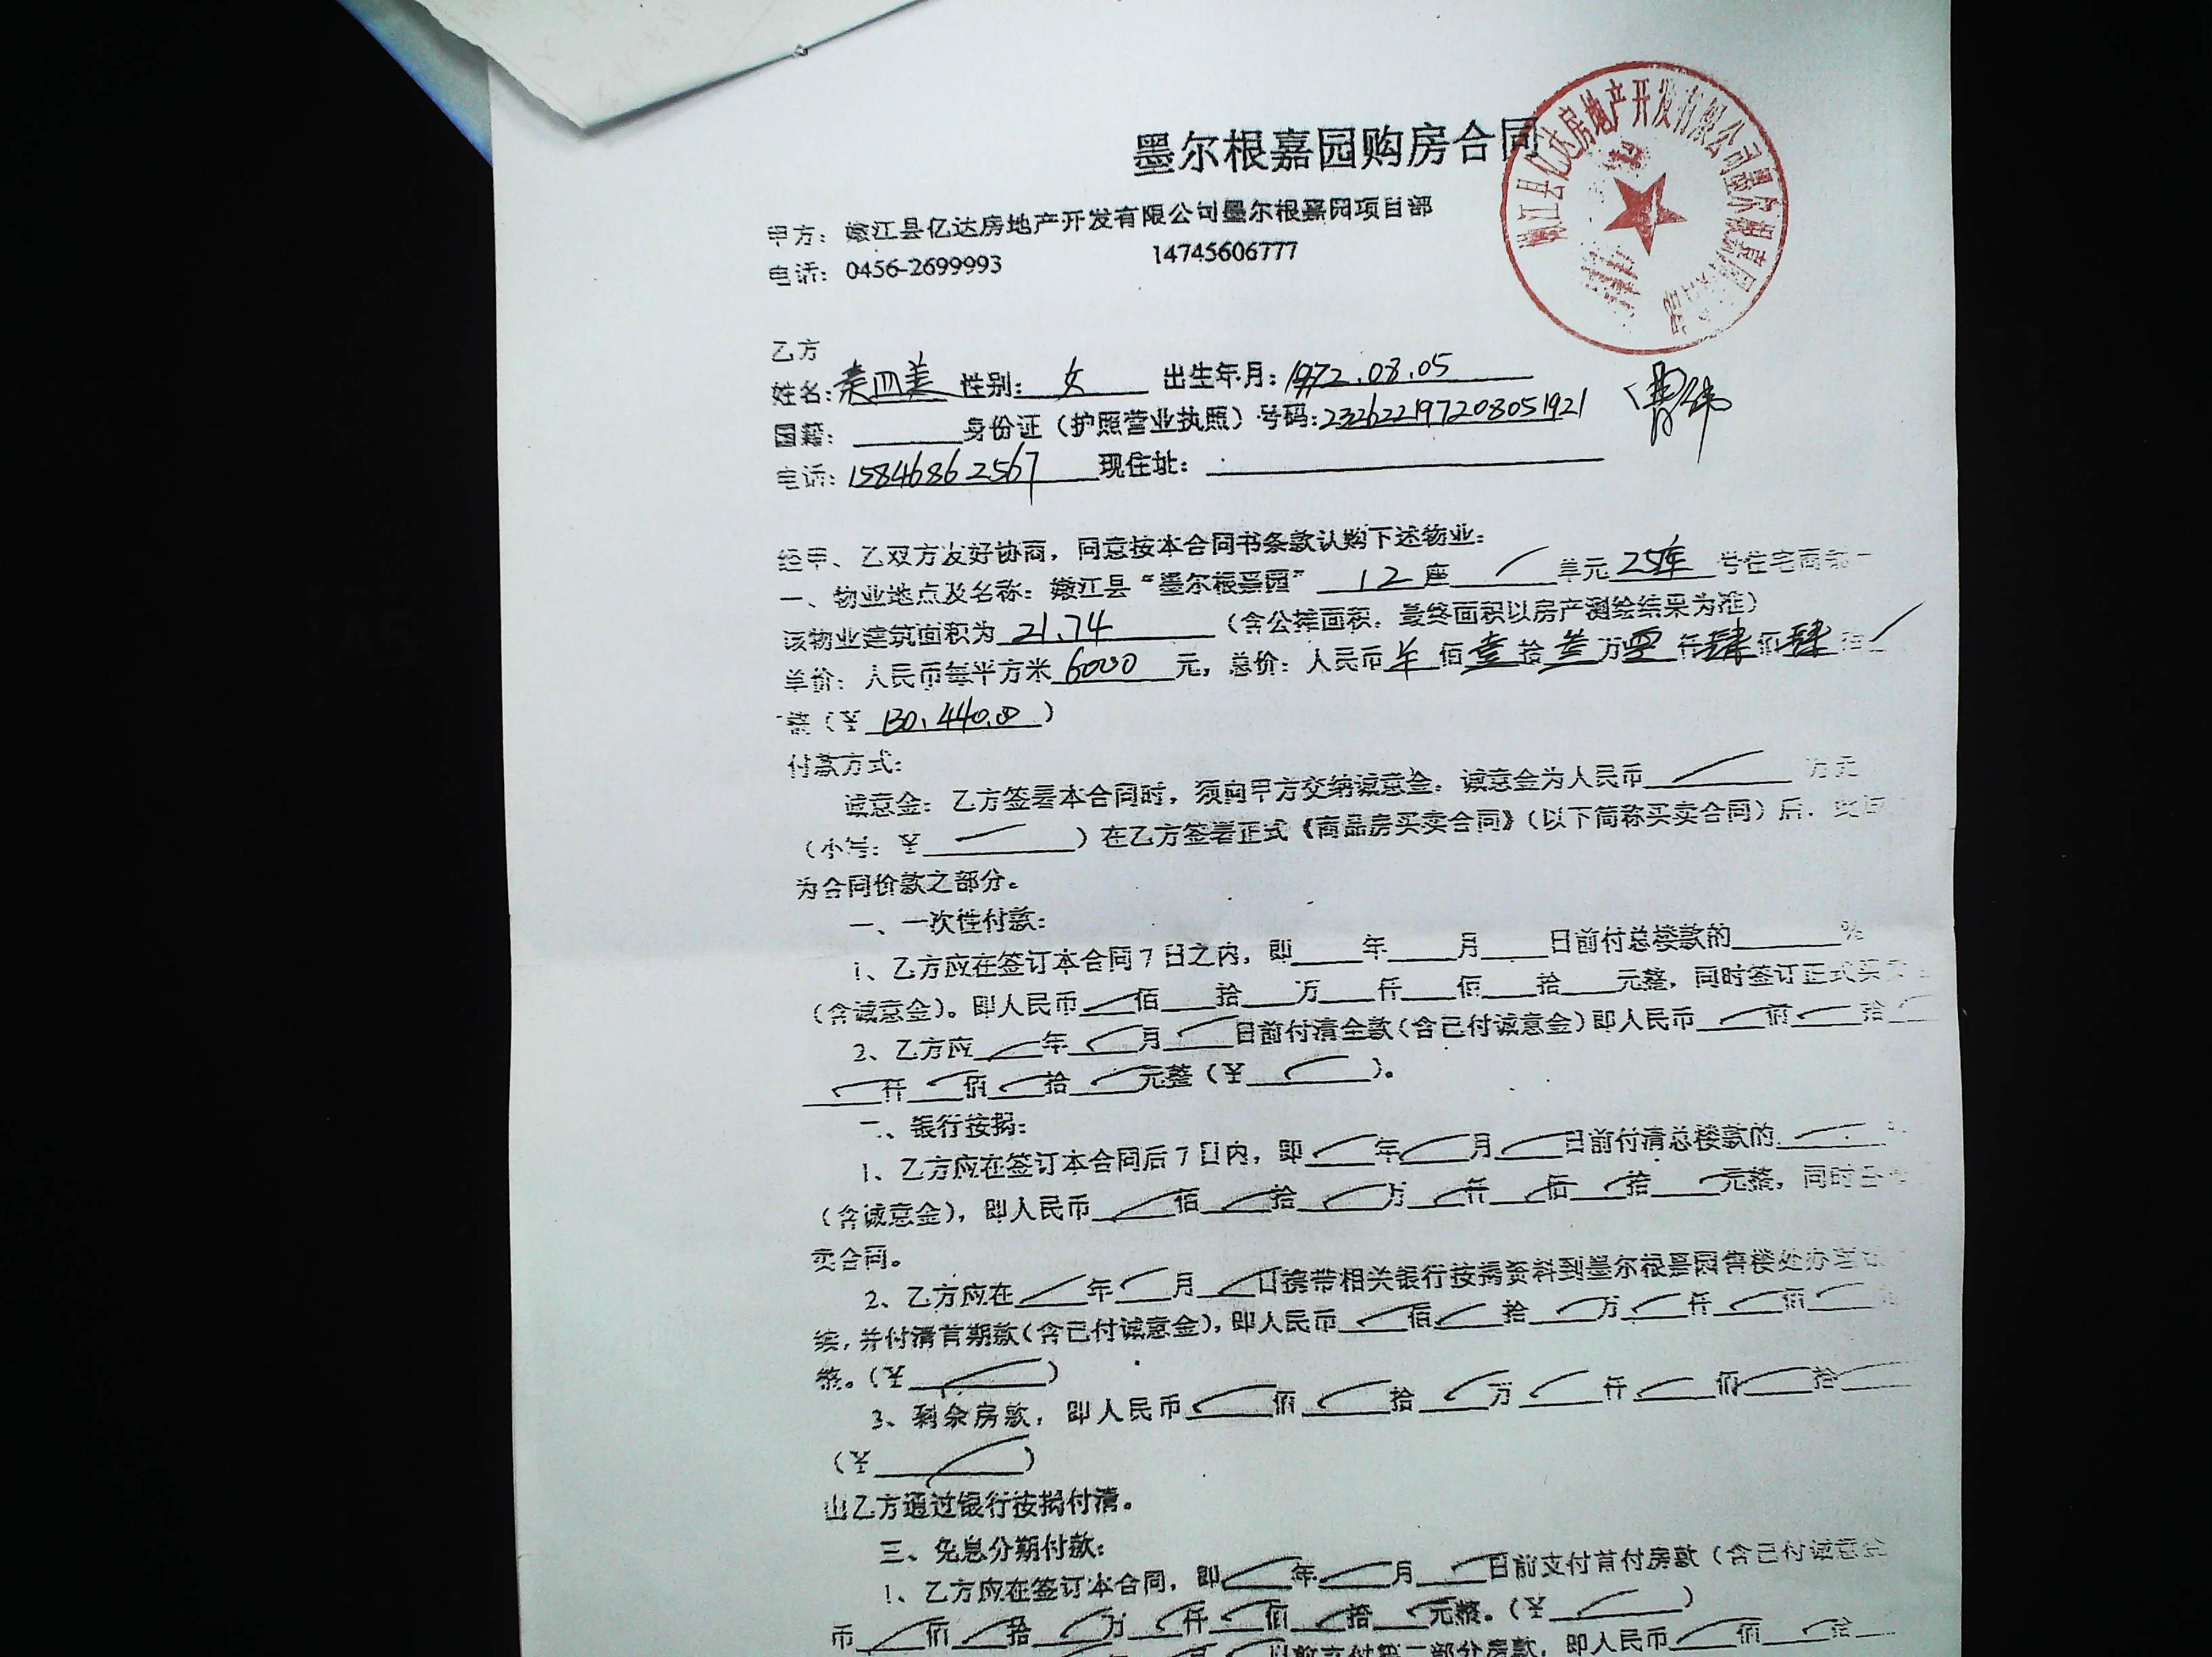 墨尔根嘉园购房合同
嫩江县亿达房地产开发有限公司墨尔根嘉园
甲方：嫩江县亿达房地产开发有限公司墨尔根嘉园项目部
电话：0456-2699993 14745606777
乙方
姓名： 四美 性别：女 出生年月：1972.08.05
国籍： 身份证（护照营业执照）号码：232622197208051921
电话：15846862567 现住址：
经甲、乙双方友好协商，同意按本合同书条款认购下述物业：
一、物业地点及名称：嫩江县“墨尔根嘉园” 12座 单元25库 号住宅商
该物业建筑面积为 21.74 （含公摊面积，最终面积以房产测绘结果为准）
单价：人民币每平方米6000元，总价：人民币 佰壹拾叁万零仟肆佰肆拾
整（￥130,440.00）
付款方式：
诚意金：乙方签署本合同时，须向甲方交纳诚意金，诚意金为人民币 万元
（小写：￥ ）在乙方签署正式《商品房买卖合同》（以下简称买卖合同）后，此
为合同价款之部分。
一、一次性付款：
1、乙方应在签订本合同7日之内，即 年 月 日前付总楼款的 %
（含诚意金）。即人民币 佰 拾 万 仟 佰 拾 元整，同时签订正式买
2、乙方应 年 月 日前付清全款（含已付诚意金）即人民币 佰 拾
仟 佰 拾 元整（￥ ）。
二、银行按揭：
1、乙方应在签订本合同后7日内，即 年 月 日前付清总楼款的
（含诚意金），即人民币 佰 拾 万 仟 佰 拾 元整，同时
卖合同。
2、乙方应在 年 月 日携带相关银行按揭资料到墨尔根嘉园售楼处办
续，并付清首期款（含已付诚意金），即人民币 佰 拾 万 仟 佰
整。（￥ ）
3、剩余房款，即人民币 佰 拾 万 仟 佰 拾
（￥ ）
由乙方通过银行按揭付清。
三、免息分期付款：
1、乙方应在签订本合同，即 年 月 日前支付首付房款（含已付诚意金
币 佰 拾 万 仟 佰 拾 元整。（￥ ）
日前支付第二部分房款，即人民币 佰 拾